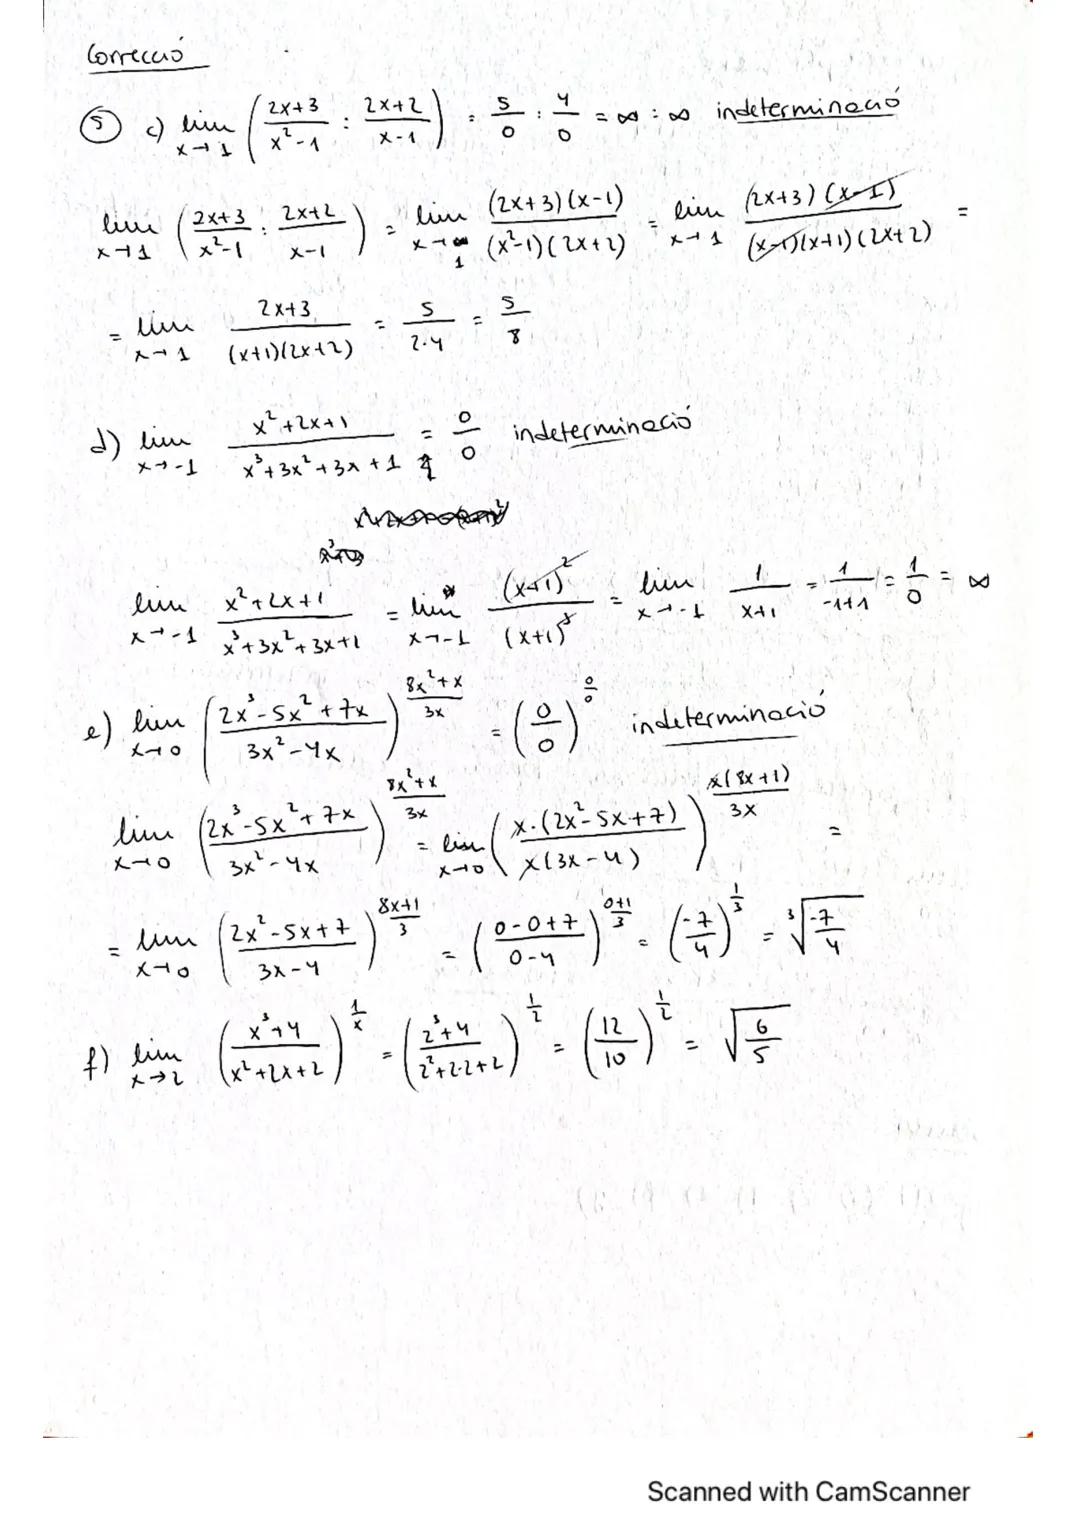 Correcció
⑤ c) lim x→1 ( (2x+3)/(x²-1) : (2x+2)/(x-1) ) = 5/0 : 4/0 = ∞ : ∞ indeterminació
lim x→1 ( (2x+3)/(x²-1) : (2x+2)/(x-1) ) = lim x→1 (2x+3)(x-1)/(x²-1)(2x+2) = lim x→1 (2x+3)(x-1)/(x-1)(x+1)(2x+2) =
= lim x→1 2x+3/(x+1)(2x+2) = 5/2·4 = 5/8
d) lim x→-1 x²+2x+1/x³+3x²+3x+1 = 0/0 indeterminació
lim x→-1 x²+2x+1/x³+3x²+3x+1 = lim x→-1 (x+1)²/(x+1)³ = lim x→-1 1/x+1 = 1/-1+1 = 1/0 = ∞
e) lim x→0 (2x³-5x²+7x/3x²-4x)^(8x²+x/3x) = (0/0)^(0/0) indeterminació
lim x→0 (2x³-5x²+7x/3x²-4x)^(8x²+x/3x) = lim x→0 (x·(2x²-5x+7)/x(3x-4))^(x(8x+1)/3x) =
= lim x→0 (2x²-5x+7/3x-4)^(8x+1/3) = (0-0+7/0-4)^(0+1/3) = (-7/4)^(1/3) = ³√(-7/4)
f) lim x→2 (x³+4/x²+2x+2)^(1/x) = (2³+4/2²+2·2+2)^(1/2) = (12/10)^(1/2) = √(6/5)
Scanned with CamScanner